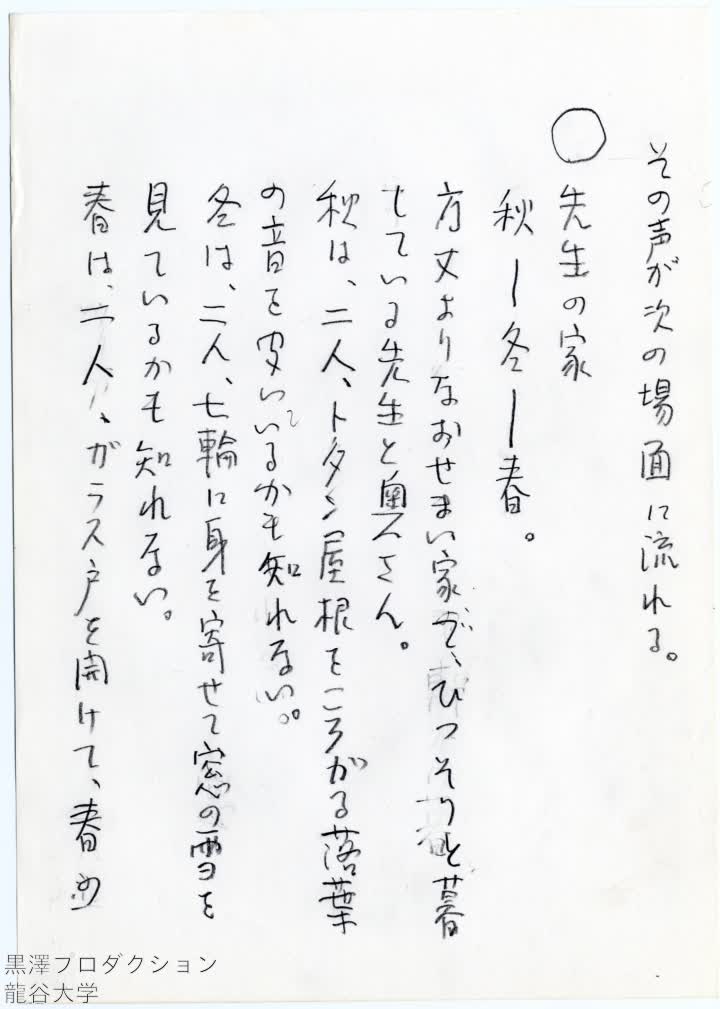 その声が次の場面に流れる。
○
先生の家
秋ー冬ー春。
方丈よりなおせまい家で、ひっそりと暮
している先生と奥さん。
秋は、二人、トタン屋根をころがる落葉
の音を聞いているかも知れない。
冬は、二人、七輪に身を寄せて窓の雪を
見ているかも知れない。
春は、二人、ガラス戸を開けて、春の
黒澤プロダクション
龍谷大学